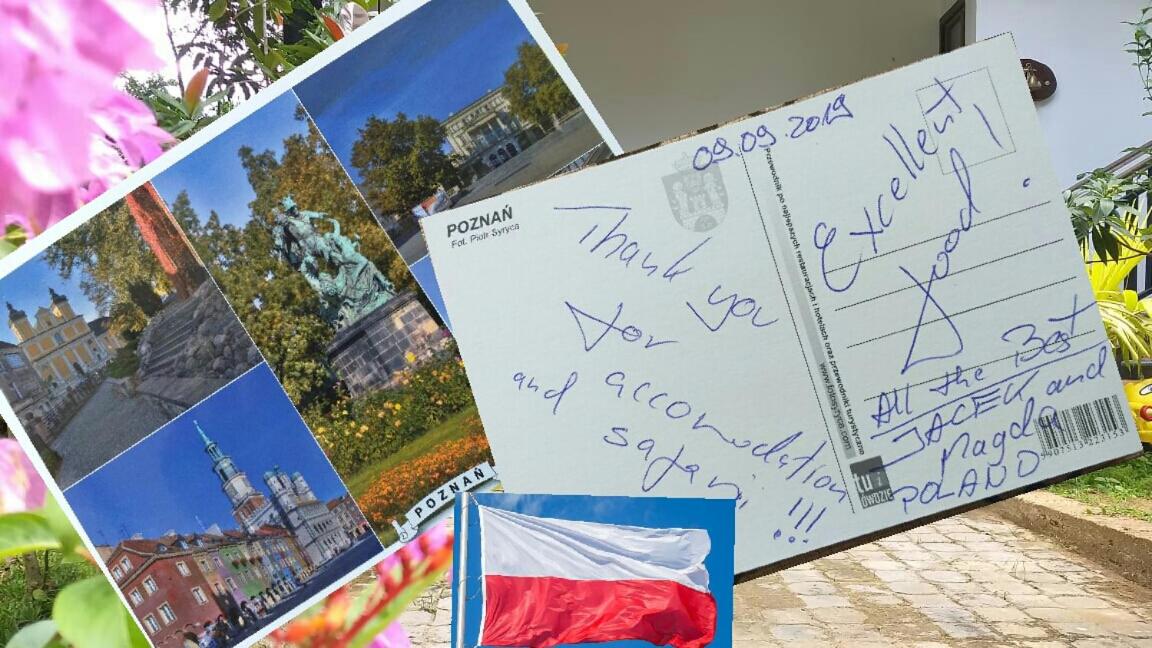 POZNAŃ
POZNAŃ
Fot. Piotr Syryca
09.09.2019
Thank
for you
accomodation
and safari !!!
Przewodnik po najlepszych restauracjach i hotelach oraz przewodniki turystyczne
www.fotosyryca.com
Excellent
food!
All the Best
JACEK and
Magda
POLAND
tu i
ÓWDZIE